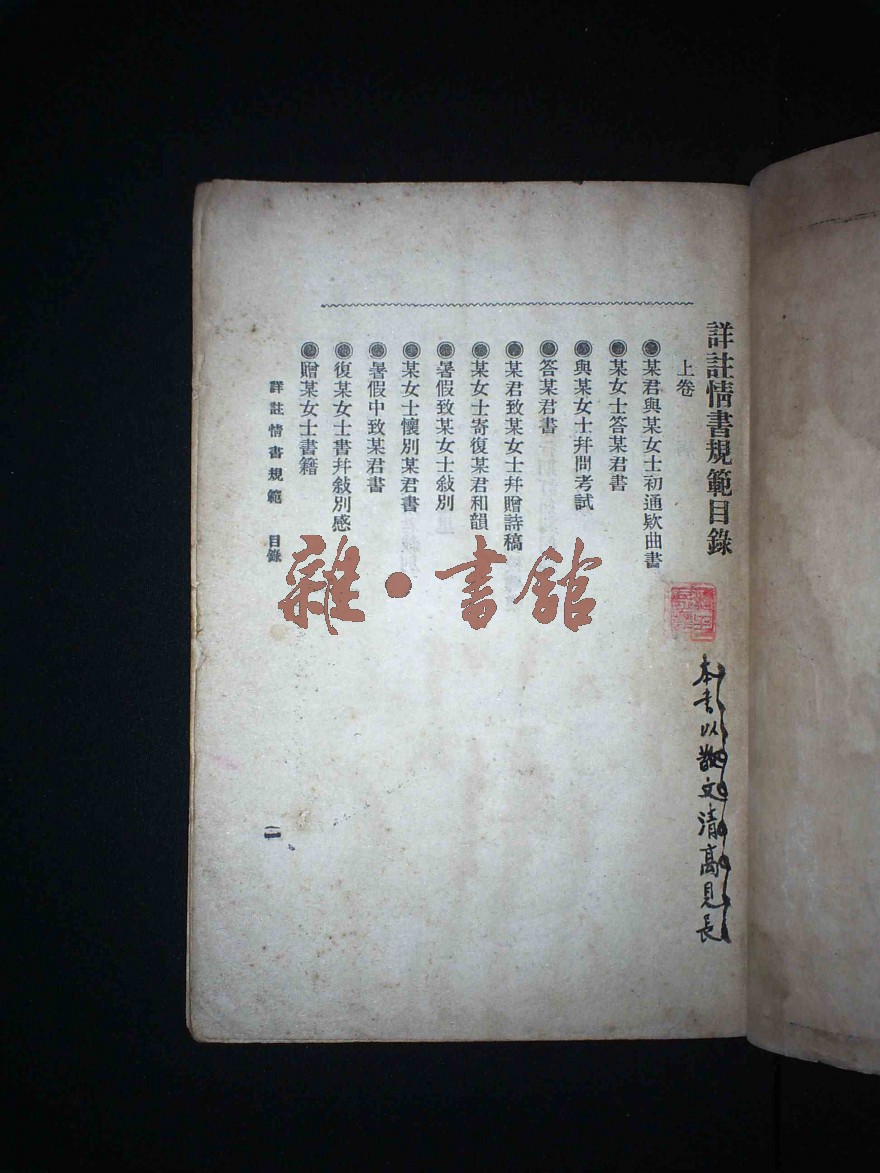 詳註情書規範目錄
上卷
某君與某女士初通欵曲書
某女士答某君書
與某女士幷問考試
答某君書
某君致某女士幷贈詩稿
某女士寄復某君和韻
暑假致某女士敍別
某女士懷別某君書
暑假中致某君書
復某女士書幷敍別感
贈某女士書籍
詳註情書規範 目錄
一
本書以散文清高見長
雜·書館